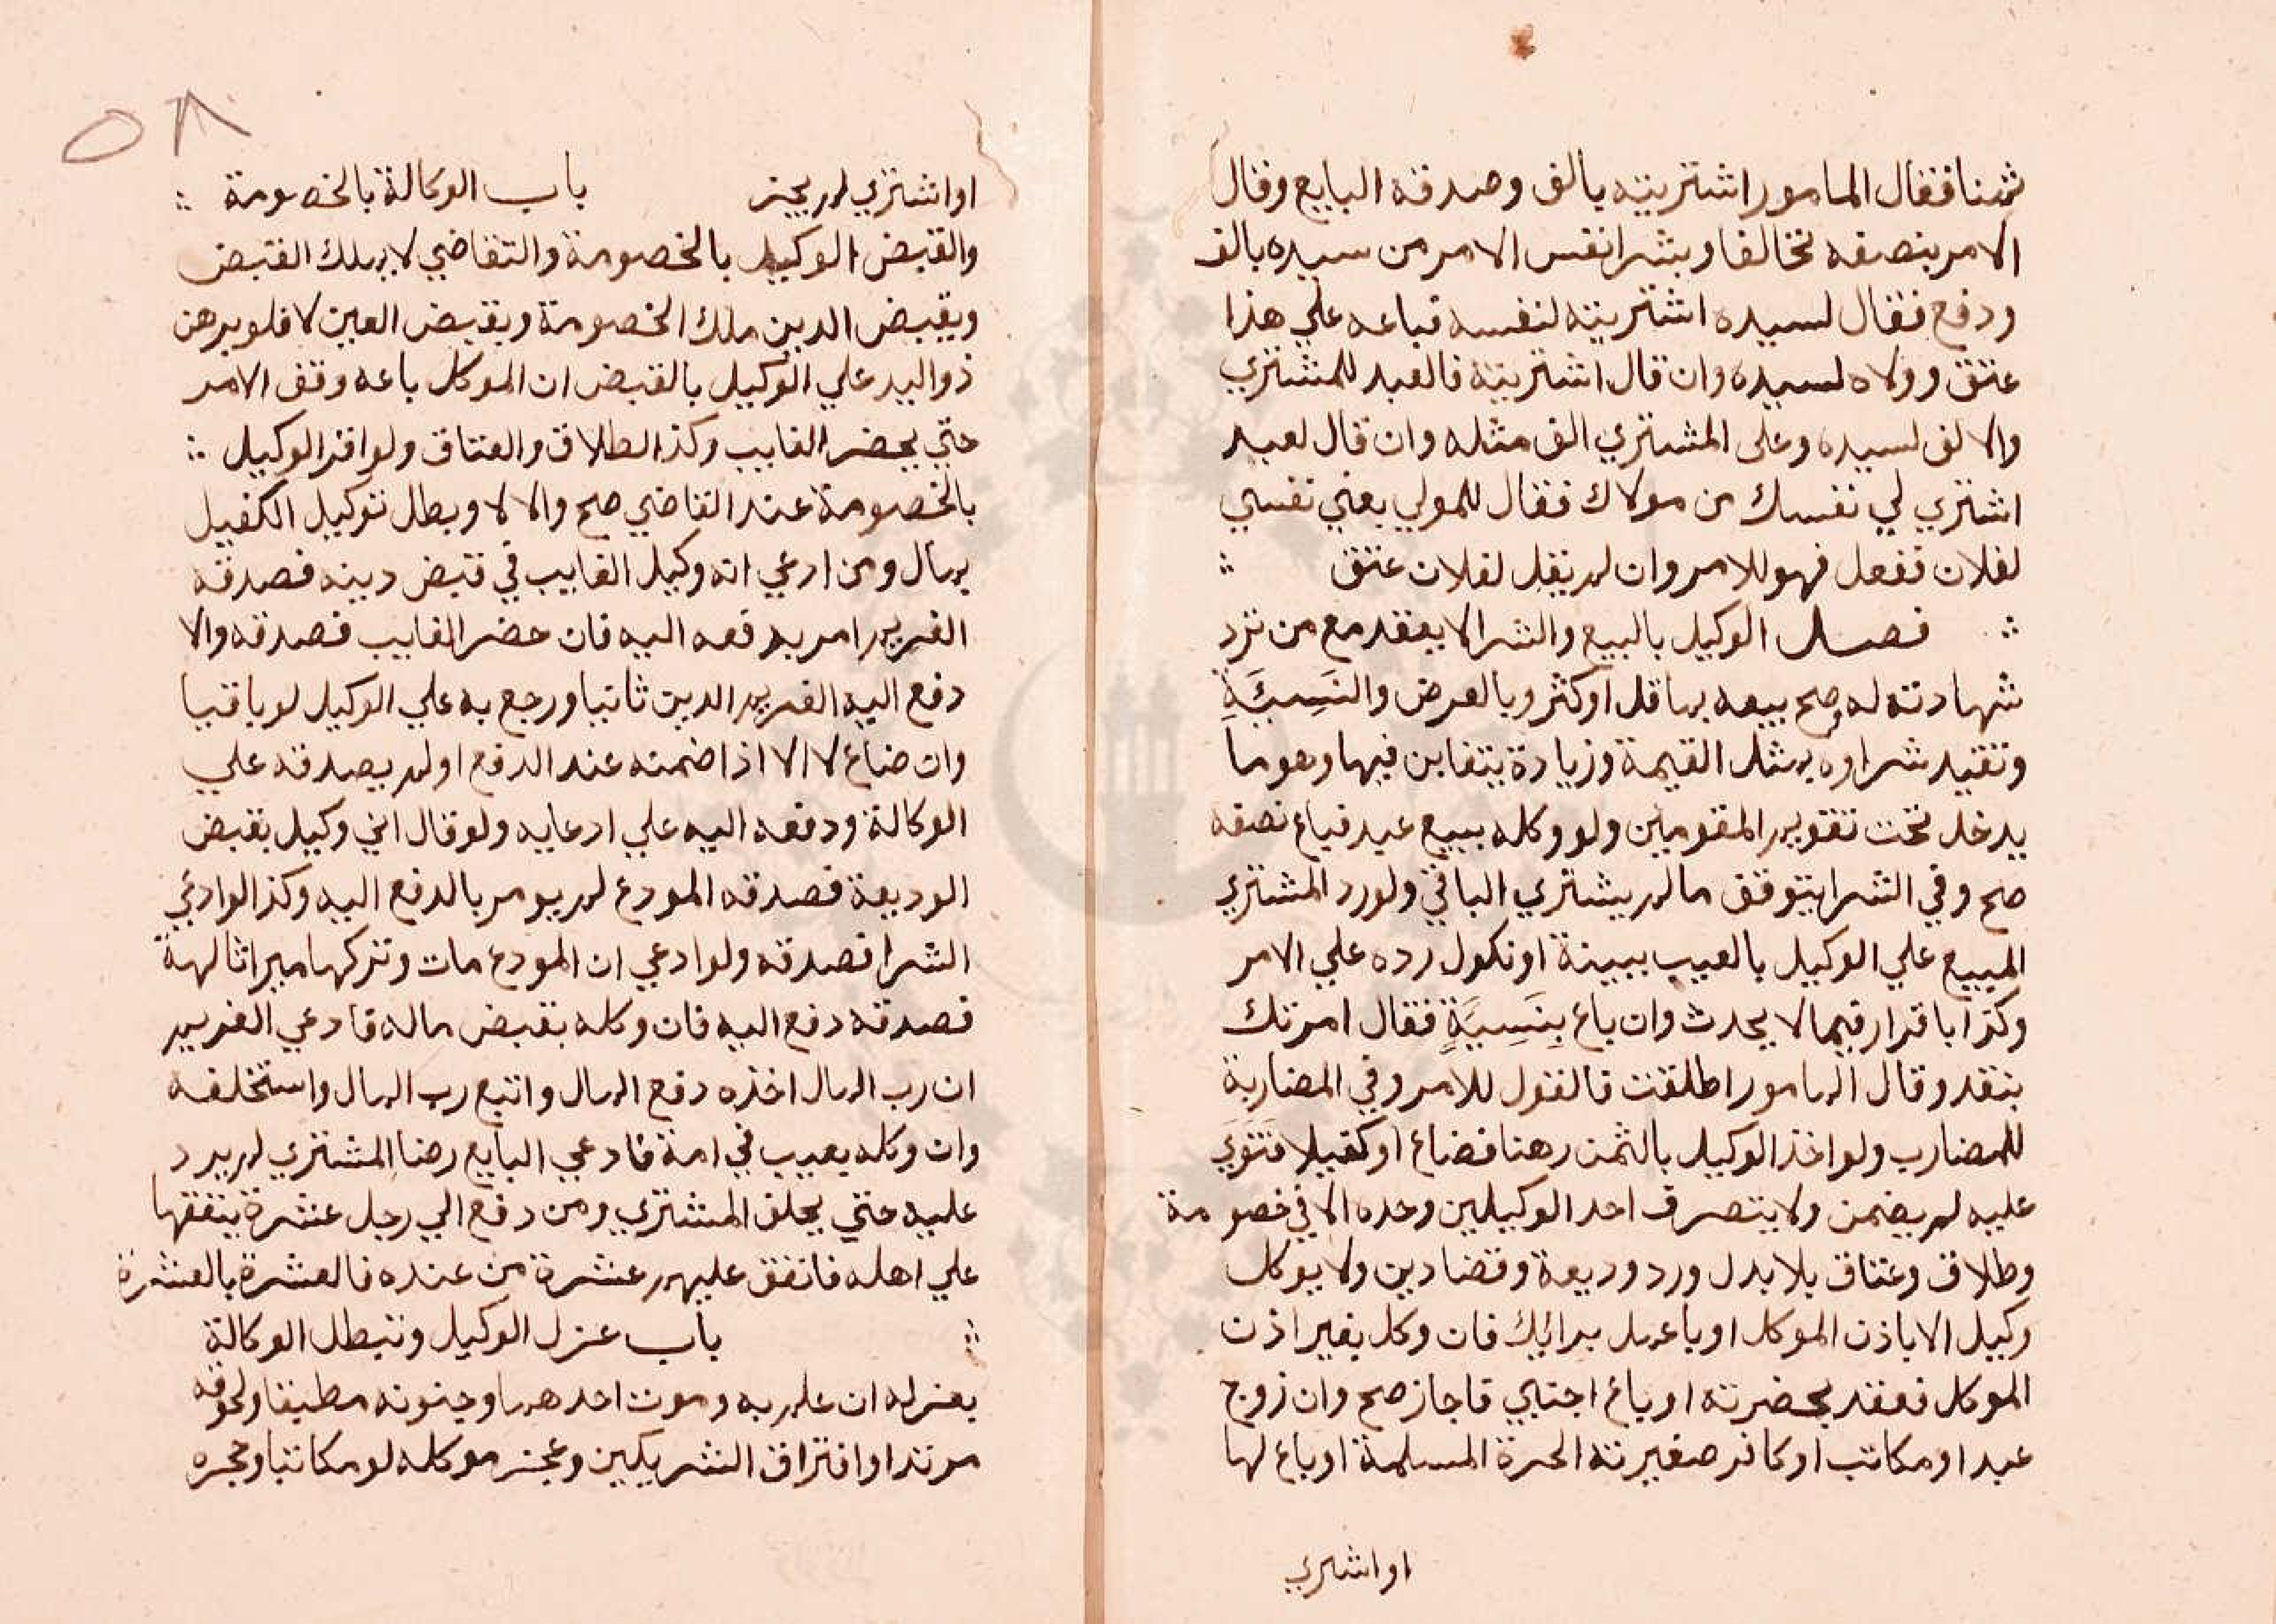 ثمنا فقال المامور اشتريته بالف وصدقه البايع وقال
الامر بنصفه تخالفا وبشرا نفس الامر من سيده بالف
ودفع فقال لسيده اشتريته لنفسه فباعه علي هذا
عتق وولاه لسيده وان قال اشتريته فالعبد للمشتري
والالف لسيده وعلى المشتري الف مثله وان قال لعبد
اشتري لي نفسك من مولاك فقال للمولي بعني نفسي
لفلان ففعل فهو للامر وان لم يقل لفلان عتق ؞
؞ فصل الوكيل بالبيع والشرا لا يعقد مع من ترد
شهادته له وصح بيعه بما قل او كثر وبالعرض والنَسِيَةِ
وتقيد شراوه بمثل القيمة وزيادة يتغابن فيها وهو ما
يدخل تحت تقويم المقومين ولو وكله ببيع عبد فباع نصفه
صح وفي الشرا يتوقف ما لم يشتري الباقي ولو رد المشتري
المبيع علي الوكيل بالعيب ببينة او نكول رده علي الامر
وكذا باقرار فيما لا يحدث وان باع بِنَسِيَةٍ فقال امرتك
بنقد وقال المامور اطلقت فالقول للامر وفي المضاربة
للمضارب ولو اخذ الوكيل بالثمن رهنا فضاع او كفيلا فَتَوَيَ
عليه لم يضمن ولا يتصرف احد الوكيلين وحده الا في خصومة
وطلاق وعتاق بلا بدل ورد وديعة وقضا دين ولا يوكل
وكيل الا باذن الموكل او باعمل برايك فان وكل بغير اذن
الموكل فعقد بحضرته او باع اجنبي فاجاز صح وان زوج
عبد او مكاتب او كافر صغيرته الحرة المسلمة او باع لها
او اشتري
٥٨
او اشتري لم يجز باب الوكالة بالخصومة ؞
والقبض الوكيل بالخصومة والتقاضي لا يملك القبض
وبقبض الدين ملك الخصومة وبقبض العين لا فلو برهن
ذو اليد علي الوكيل بالقبض ان الموكل باعه وقف الامر
حتي يحضر الغايب وكذ الطلاق والعتاق ولو اقر الوكيل ؞
بالخصومة عند القاضي صح والا لا وبطل توكيل الكفيل
بمال ومن ادعي انه وكيل الغايب في قبض دينه فصدقه
الغريم امر بدفعه اليه فان حضر الغايب فصدقه والا
دفع اليه الغريم الدين ثانيا ورجع به علي الوكيل لو باقيا
وان ضاع لا الا اذا ضمنه عند الدفع او لم يصدقه علي
الوكالة ودفعه اليه علي ادعايه ولو قال اني وكيل بقبض
الوديعة فصدقه المودع لم يومر بالدفع اليه وكذ الوادعي
الشرا فصدقه ولو ادعي ان المودع مات وتركها ميراثا لهة
فصدقه دفع اليه فان وكله بقبض ماله فادعي الغريم
ان رب المال اخذه دفع المال واتبع رب المال واستخلفه
وان وكله بعيب في امة فادعي البايع رضا المشتري لم يرد
عليه حتي يحلف المشتري ومن دفع الي رجل عشرة ينفقها
علي اهله فانفق عليهم عشرة من عنده فالعشرة بالعشرة
؞ باب عزل الوكيل وتبطل الوكالة
بعزله ان علم به وموت احدهما وجنونه مطبقا ولحوقه
مرتدا وافتراق الشريكين وعجز موكله لو مكاتبا وحجره